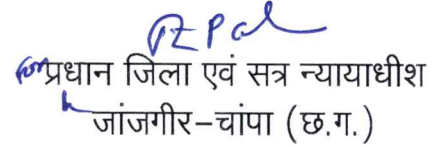 for प्रधान जिला एवं सत्र न्यायाधीश
जांजगीर-चांपा (छ.ग.)